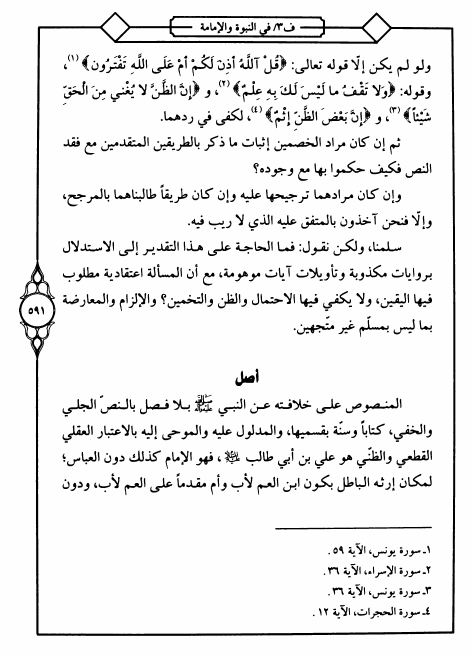 ف٣/ في النبوة والإمامة
ولو لم يكن إلّا قوله تعالى: ﴿قُلْ آللَّهُ أَذِنَ لَكُمْ أَمْ عَلَى اللَّهِ تَفْتَرُونَ﴾ (١)،
وقوله: ﴿وَلَا تَقْفُ ما لَيْسَ لَكَ بِهِ عِلْمٌ﴾ (٢)، و ﴿إِنَّ الظَّنَّ لا يُغْني مِنَ الْحَقِّ
شَيْئاً﴾ (٣)، و ﴿إِنَّ بَعْضَ الظَّنِّ إِثْمٌ﴾ (٤)، لكفى في ردهما.
ثم إن كان مراد الخصمين إثبات ما ذكر بالطريقين المتقدمين مع فقد
النص فكيف حكموا بها مع وجوده؟
وإن كان مرادهما ترجيحها عليه وإن كان طريقاً طالبناهما بالمرجح،
وإلّا فنحن آخذون بالمتفق عليه الذي لا ريب فيه.
سلمنا، ولكن نقول: فما الحاجة على هذا التقدير إلى الاستدلال
بروايات مكذوبة وتأويلات آيات موهومة، مع أن المسألة اعتقادية مطلوب
فيها اليقين، ولا يكفي فيها الاحتمال والظن والتخمين؟ والإلزام والمعارضة
بما ليس بمسلّم غير متّجهين.
٥٩١
أصل
المنصوص على خلافته عن النبي ﷺ بلا فصل بالنصّ الجلي
والخفي، كتاباً وسنّة بقسميها، والمدلول عليه والموحى إليه بالاعتبار العقلي
القطعي والظنّي هو علي بن أبي طالب ؏، فهو الإمام كذلك دون العباس؛
لمكان إرثه الباطل بكون ابن العم لأب وأم مقدماً على العم لأب، ودون
١ـ سورة يونس، الآية ٥٩.
٢ـ سورة الإسراء، الآية ٣٦.
٣ـ سورة يونس، الآية ٣٦.
٤ـ سورة الحجرات، الآية ١٢.